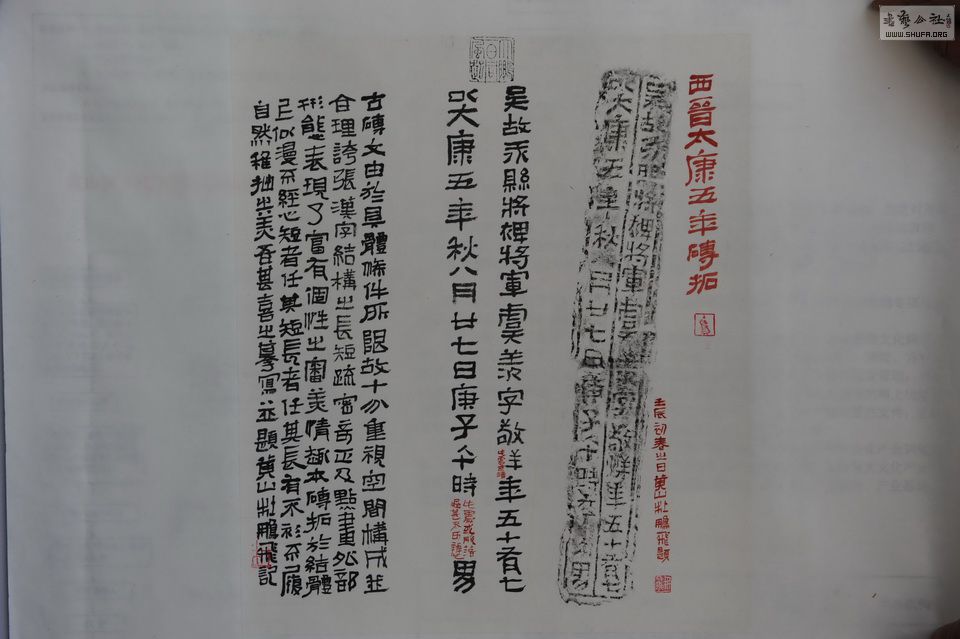 西晉太康五年磚拓
壬辰初春之日黄山杜鵬飛題
將裨將軍虞
年五十有七
大康五年秋
月廿七日庚子
時
男
吴故
縣將裨將軍虞
字敬
年五十有七
大康五年秋八月廿七日庚子
時
男
古磚文由於具體條件所限故十分重視空間構成並
合理誇張漢字結構之長短疏密奇正及點畫外部
形態表現了富有個性之審美情趣本磚拓於結體
已似漫不經心短者任其短長者任其長有不衫不履
自然稚拙之美吾甚喜之摹寫並題黄山杜鵬飛記
書藝公社
WWW.SHUFA.ORG